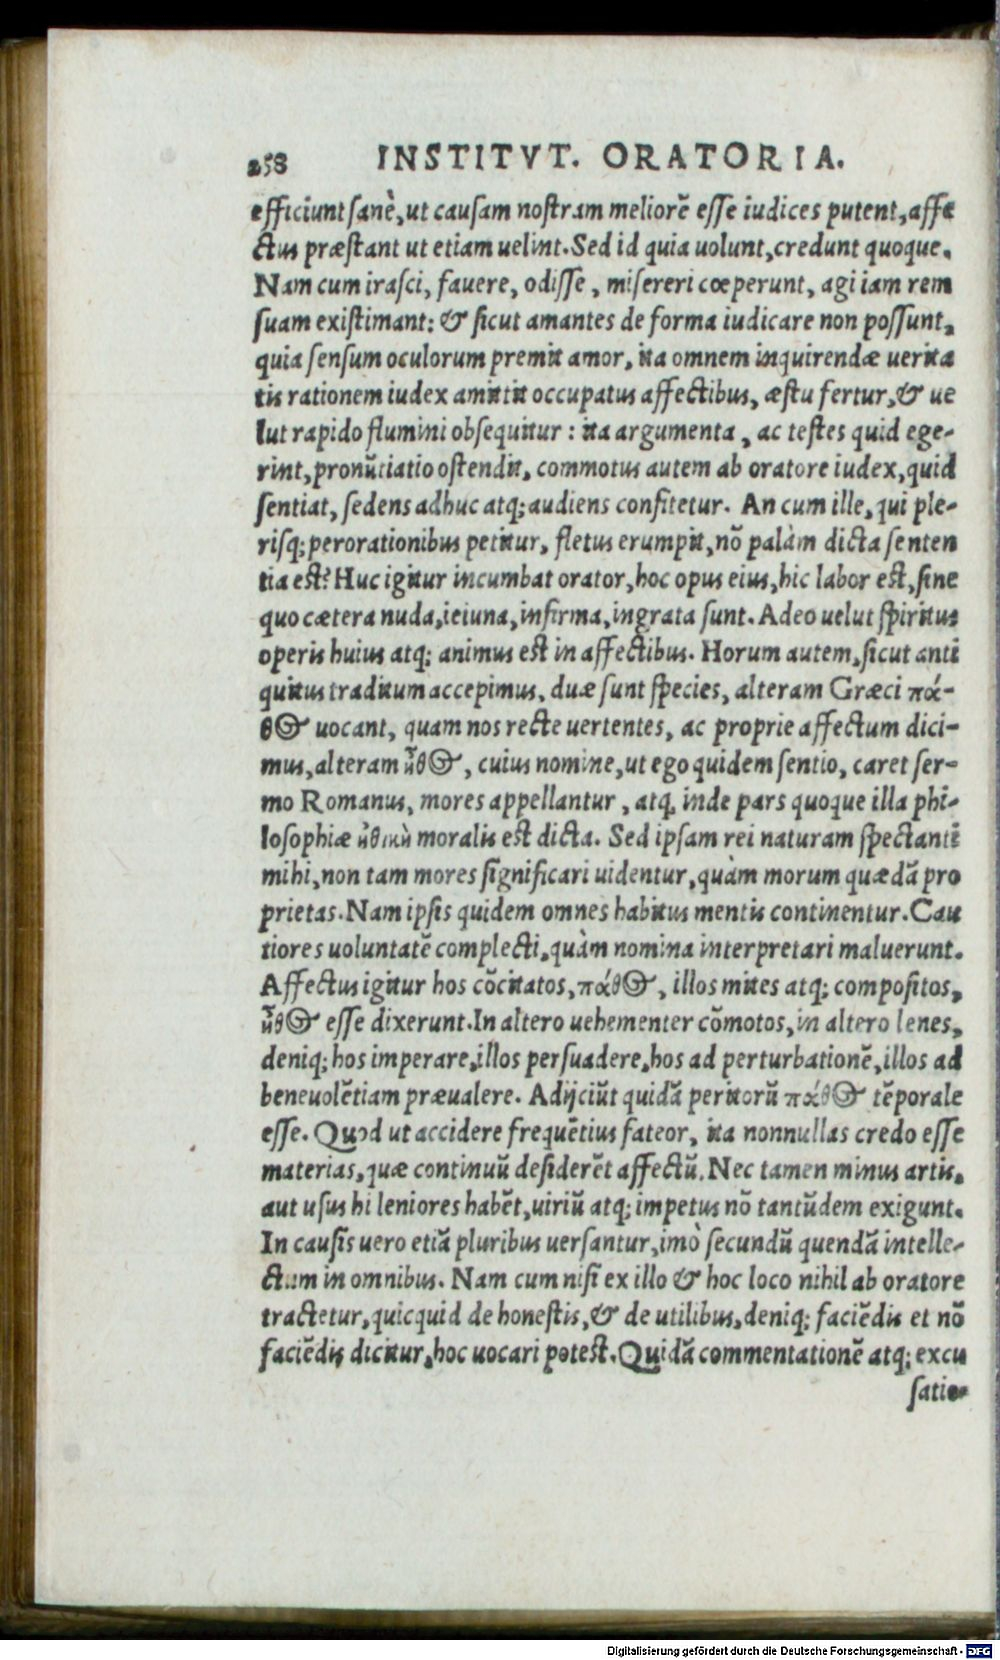 258 INSTITVT. ORATORIA.
efficiunt sanè, ut causam nostram meliorē esse iudices putent, affe
ctus præstant ut etiam uelint. Sed id quia uolunt, credunt quoque.
Nam cum irasci, fauere, odisse, misereri cœperunt, agi iam rem
suam existimant: & sicut amantes de forma iudicare non possunt,
quia sensum oculorum premit amor, ita omnem inquirendæ uerita
tis rationem iudex amittit occupatus affectibus, æstu fertur, & ue
lut rapido flumini obsequitur: ita argumenta, ac testes quid ege-
rint, pronūtiatio ostendit, commotus autem ab oratore iudex, quid
sentiat, sedens adhuc atq; audiens confitetur. An cum ille, qui ple-
risq; perorationibus petitur, fletus erumpit, nō palàm dicta senten
tia est? Huc igitur incumbat orator, hoc opus eius, hic labor est, sine
quo cætera nuda, ieiuna, infirma, ingrata sunt. Adeo uelut spiritus
operis huius atq; animus est in affectibus. Horum autem, sicut anti
quitus traditum accepimus, duæ sunt species, alteram Græci πά-
θος uocant, quam nos recte uertentes, ac proprie affectum dici-
mus, alteram ἦθος, cuius nomine, ut ego quidem sentio, caret ser-
mo Romanus, mores appellantur, atq, inde pars quoque illa phi-
losophiæ ἠθικὴ moralis est dicta. Sed ipsam rei naturam spectanti
mihi, non tam mores significari uidentur, quàm morum quædā pro
prietas. Nam ipsis quidem omnes habitus mentis continentur. Cau
tiores uoluntatē complecti, quàm nomina interpretari maluerunt.
Affectus igitur hos cōcitatos, πάθος, illos mites atq; compositos,
ἦθος esse dixerunt. In altero uehementer cōmotos, in altero lenes,
deniq; hos imperare, illos persuadere, hos ad perturbationē, illos ad
beneuolētiam præualere. Adijciūt quidā peritorū πάθος tēporale
esse. Quod ut accidere frequētius fateor, ita nonnullas credo esse
materias, quæ continuū desiderēt affectū. Nec tamen minus artis,
aut usus hi leniores habēt, uiriū atq; impetus nō tantūdem exigunt.
In causis uero etiā pluribus uersantur, imò secundū quendā intelle-
ctum in omnibus. Nam cum nisi ex illo & hoc loco nihil ab oratore
tractetur, quicquid de honestis, & de utilibus, deniq; faciēdis et nō
faciēdis dicitur, hoc uocari potest. Quidā commentationē atq; excu
satio-
Digitalisierung gefördert durch die Deutsche Forschungsgemeinschaft - DFG